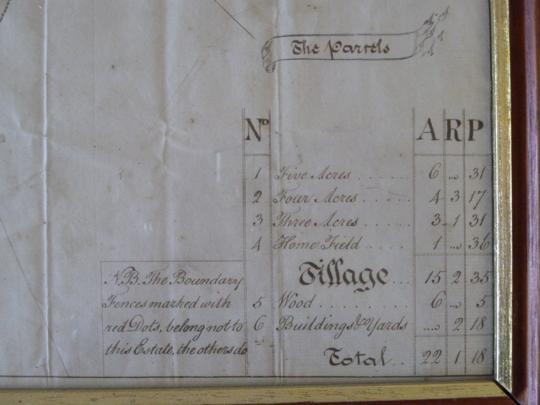 The Parcels
No. A R P
1 Five Acres . . . . . . 6 ... 31
2 Four Acres . . . . . . 4 3 17
3 Three Acres . . . . . 3 1 31
4 Home Field . . . . . 1 ... 36
Tillage . . . 15 2 35
5 Wood . . . . . . . . 6 ... 5
6 Buildings &c Yards .... 2 18
Total . . 22 1 18
N.B. The Boundary
Fences marked with
red Dots, belong not to
this Estate, the others do